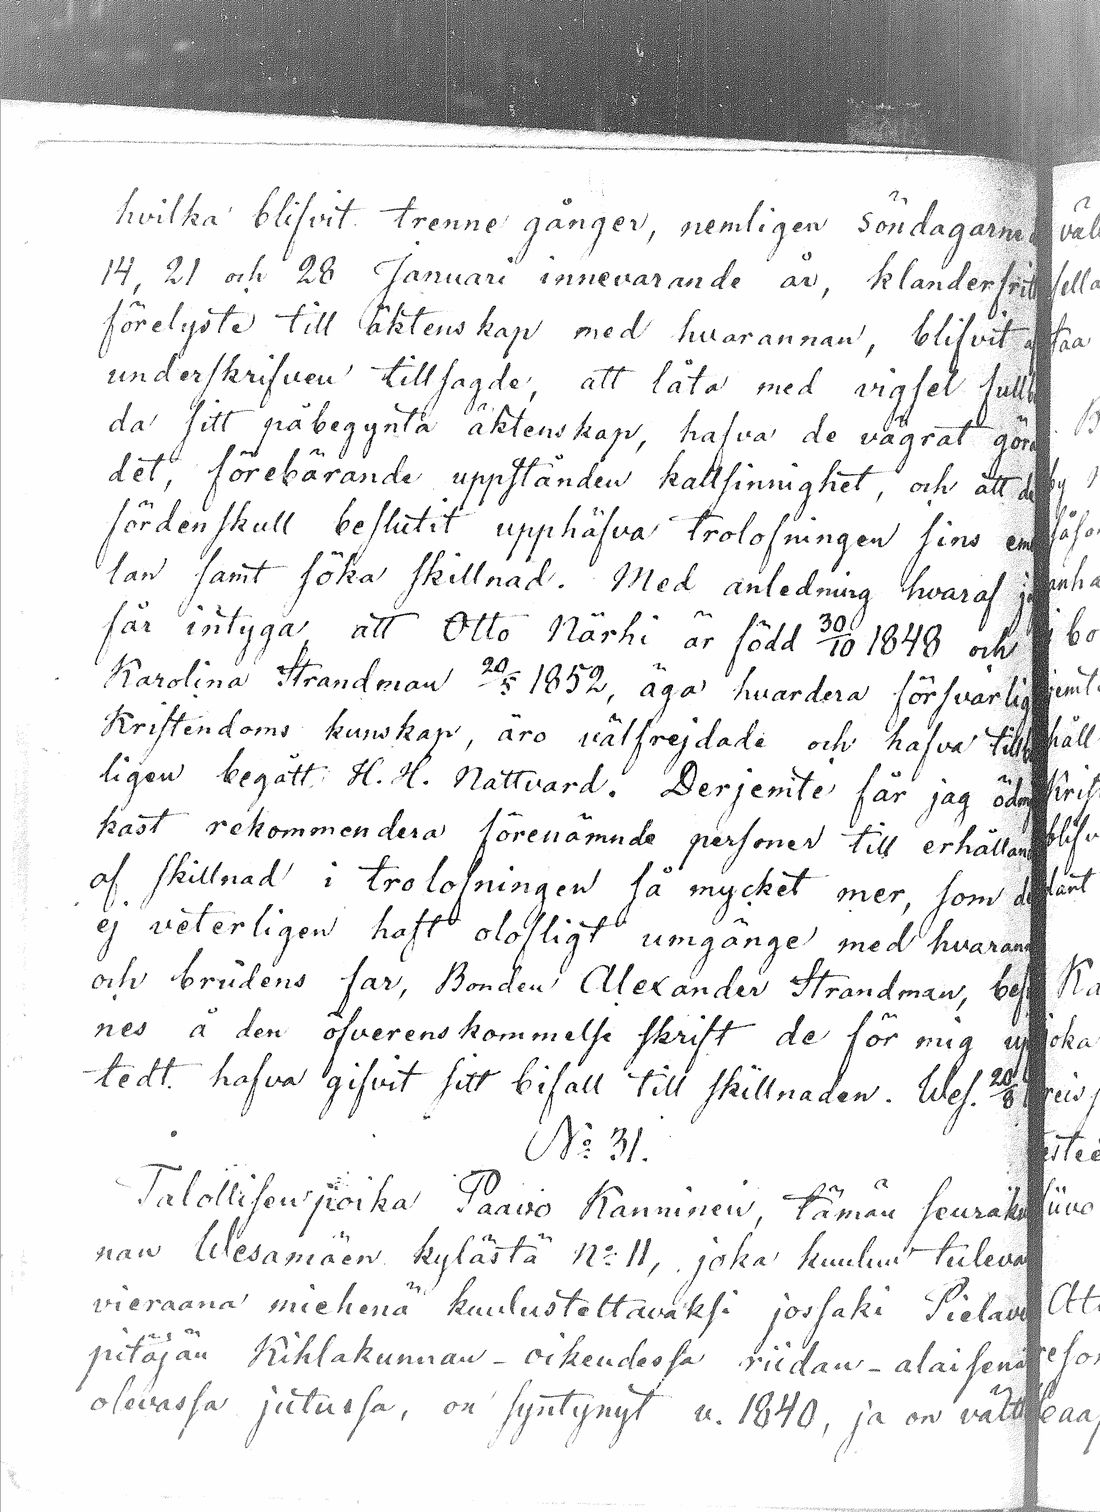 hvilka blifvit trenne gånger, nemligen Söndagarne
14, 21 och 28 Januari innevarande år, klanderfritt
förelyste till äktenskap med hvarannan, blifvit
underskrifven tillsagde, att låta med vigsel full
da sitt påbegynta äktenskap, hafva de vägrat göra
det, förebärande uppstånden kallsinnighet, och att de
fördenskull beslutit upphäfva trolofningen sins em
lan samt söka skillnad. Med anledning hvaraf
får intyga, att Otto Närhi är född 30/10 1848 och
Karolina Strandman 20/5 1852, äga hvardera försvarlig
Kristendoms kunskap, äro välfrejdade och hafva
ligen begått H. H. Nattvard. Derjemte får jag ödm
kast rekommendera förenämnde personer till erhålland
af skillnad i trolofningen så mycket mer, som de
ej veterligen haft olofligt umgänge med hvarann
och brudens far, Bonden Alexander Strandman, bef
nes å den öfverenskommelse skrift de för mig up
tedt hafva gifvit sitt bifall till skillnaden. Wes. 20/8
No 31.
Talollisen poika Paavo Kanninen, tämän seuraku
nan Wesamäen kylästä No 11, joka kuuluu tuleva
vieraana miehenä kuulustettavaksi jossaki Pielave
pitäjän Kihlakunnan-oikeudessa riidan-alaisena
olevassa jutussa, on syntynyt v. 1840, ja on vält